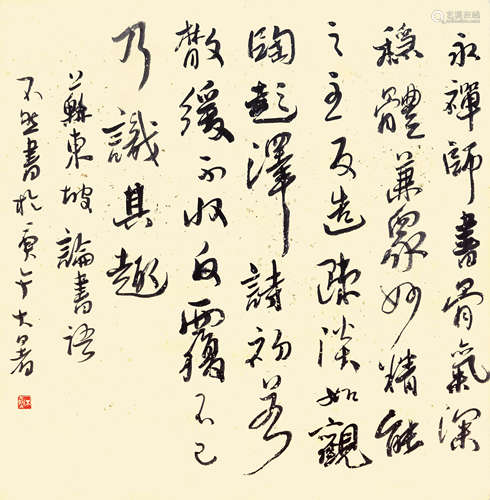 永禅師書骨氣深
穩體兼眾妙精能
之至反造疎淡如觀
陶彭澤詩初若
散緩不收反覆不已
乃識其趣
蘇東坡論書語
不
書於庚午大暑